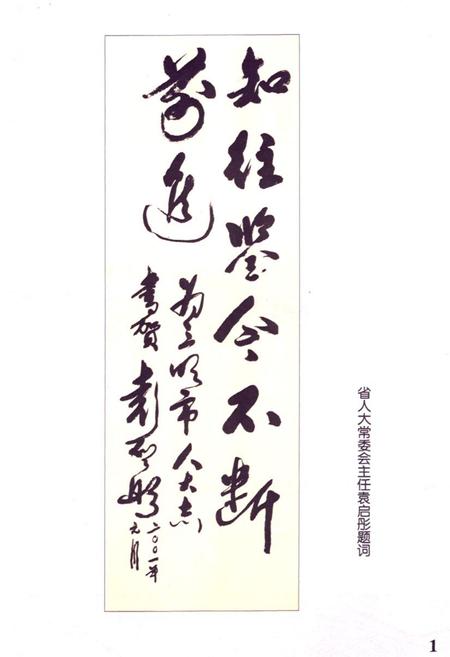 知往鉴今不断
前进
为三明市人大志
书贺 袁启彤
二〇〇一年
元月
省人大常委会主任袁启彤题词
1